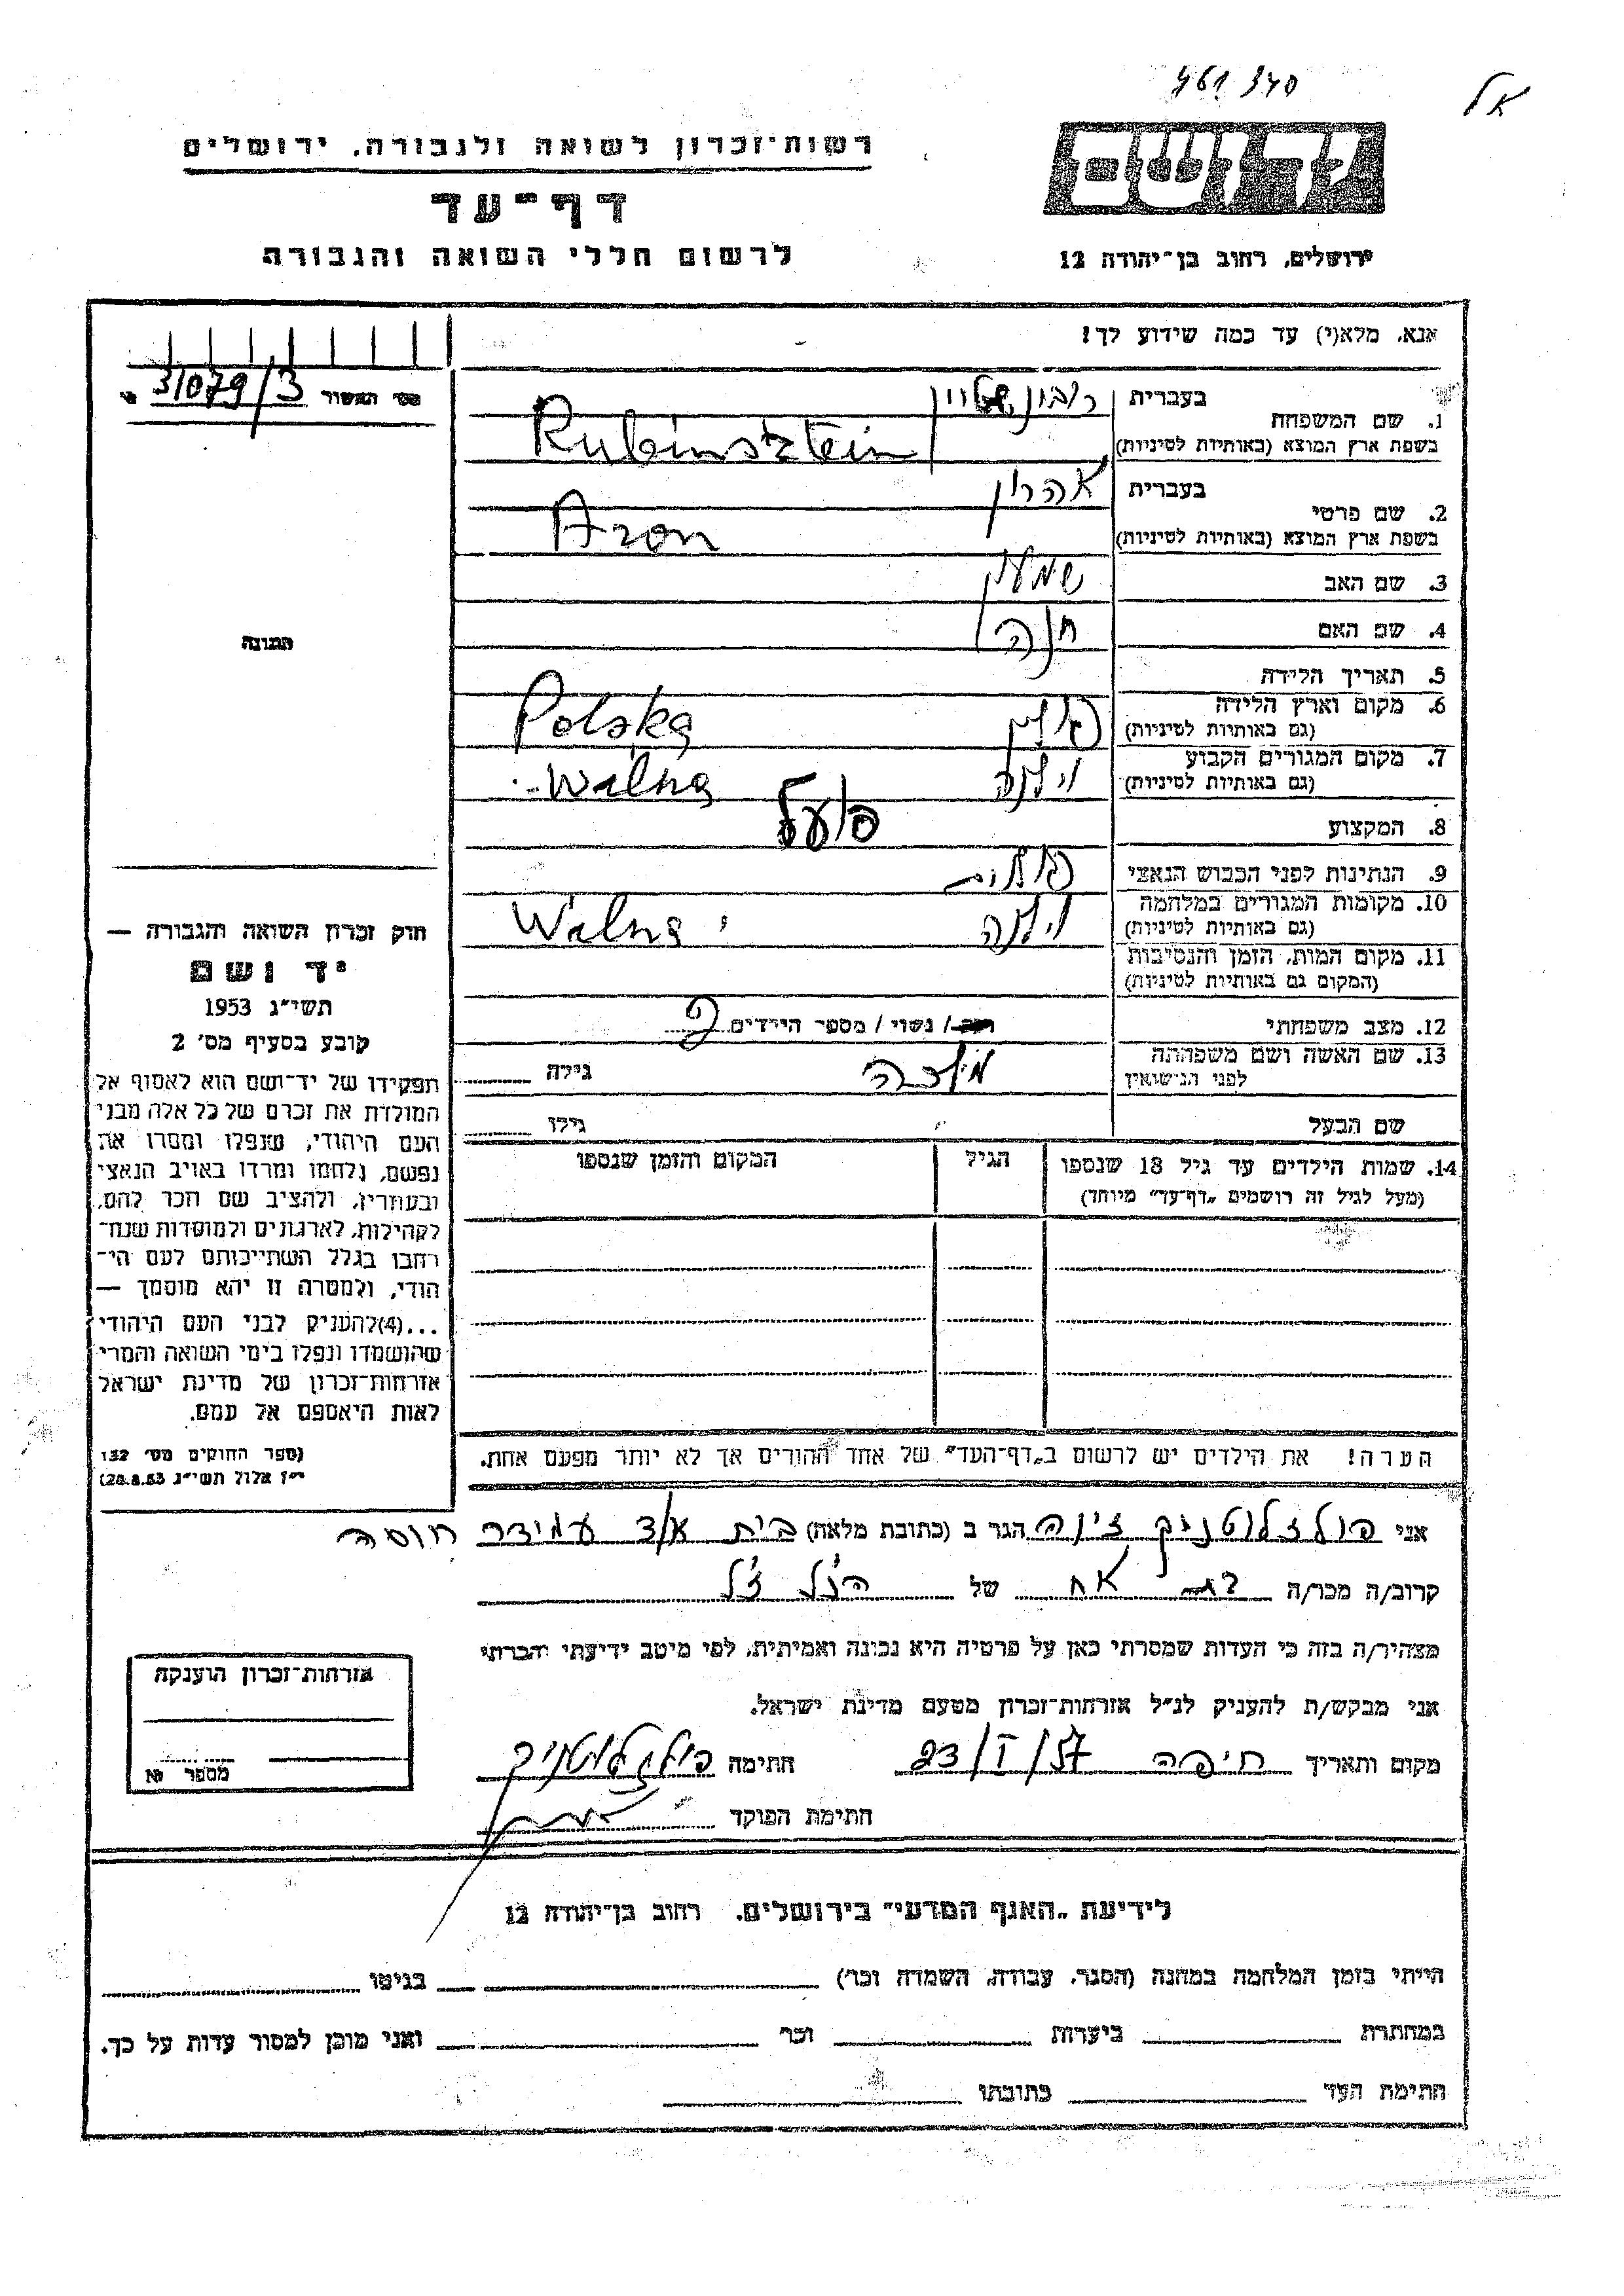 461 340
אל
רשות־זכרון לשואה ולגבורה, ירושלים
דף־עד
לרשום חללי השואה והגבורה
יד ושם
ירושלים, רחוב בן־יהודה 12
אנא, מלא(י) עד כמה שידוע לך!
מס׳ האשור 31079/3
1. שם המשפחה בעברית רובינשטיין
בשפת ארץ המוצא (באותיות לטיניות) Rubinsztein
2. שם פרטי בעברית אהרון
בשפת ארץ המוצא (באותיות לטיניות) Aron
3. שם האב שמעון
4. שם האם חנה
5. תאריך הלידה
6. מקום וארץ הלידה פולין Polska
(גם באותיות לטיניות)
7. מקום המגורים הקבוע וילנה Wilna
(גם באותיות לטיניות)
8. המקצוע פועל
9. הנתינות לפני הכבוש הנאצי
10. מקומות המגורים במלחמה וילנה Wilna
(גם באותיות לטיניות)
11. מקום המות, הזמן והנסיבות
(המקום גם באותיות לטיניות)
12. מצב משפחתי רוק / נשוי / מספר הילדים
13. שם האשה ושם משפחתה
לפני הנישואין גילה
שם הבעל גילו
14. שמות הילדים עד גיל 18 שנספו הגיל המקום והזמן שנספו
(מעל לגיל זה רושמים „דף־עד” מיוחד)
הערה! את הילדים יש לרשום ב„דף־העד” של אחד ההורים אך לא יותר מפעם אחת.
התמונה
חוק זכרון השואה והגבורה —
יד ושם
תשי״ג 1953
קובע בסעיף מס׳ 2
תפקידו של יד־ושם הוא לאסוף אל
המולדת את זכרם של כל אלה מבני
העם היהודי, שנפלו ומסרו את
נפשם, נלחמו ומרדו באויב הנאצי
ובעוזריו, ולהציב שם וזכר להם,
לקהילות, לארגונים ולמוסדות שנח־
רחבו בגלל השתייכותם לעם הי־
הודי, ולמטרה זו יהא מוסמך —
...(4) להעניק לבני העם היהודי
שהושמדו ונפלו בימי השואה והמרי
אזרחות־זכרון של מדינת ישראל
לאות היאספם אל עמם.
(ספר החוקים מס׳ 132
י״ז אלול תשי״ג 28.8.53)
אני פולזלוטניק זינה הגר ב (כתובת מלאה) בית
קרוב/ה מכר/ה אח של הנ״ל
מצהיר/ה בזה כי העדות שמסרתי כאן על פרטיה היא נכונה ואמיתית, לפי מיטב ידיעתי והכרתי
אני מבקש/ת להעניק לנ״ל אזרחות־זכרון מטעם מדינת ישראל.
מקום ותאריך חיפה 23/I/57 חתימה פולזלוטניק
חתימת הפוקד
אזרחות־זכרון הוענקה
מספר
לידיעת „האגף המדעי” בירושלים, רחוב בן־יהודה 12
הייתי בזמן המלחמה במחנה (הסגר, עבודה, השמדה וכו׳) בגיטו
במחתרת ביערות וכו׳ ואני מוכן למסור עדות על כך.
חתימת העד כתובתו